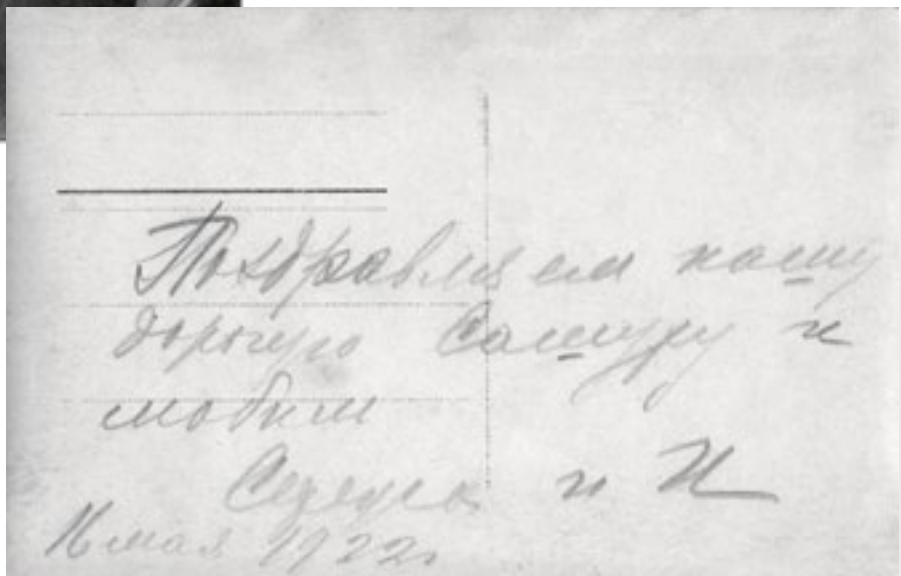 Поздравляем нашу
дорогую Сашуру и
любим
и И
16 мая 1922г